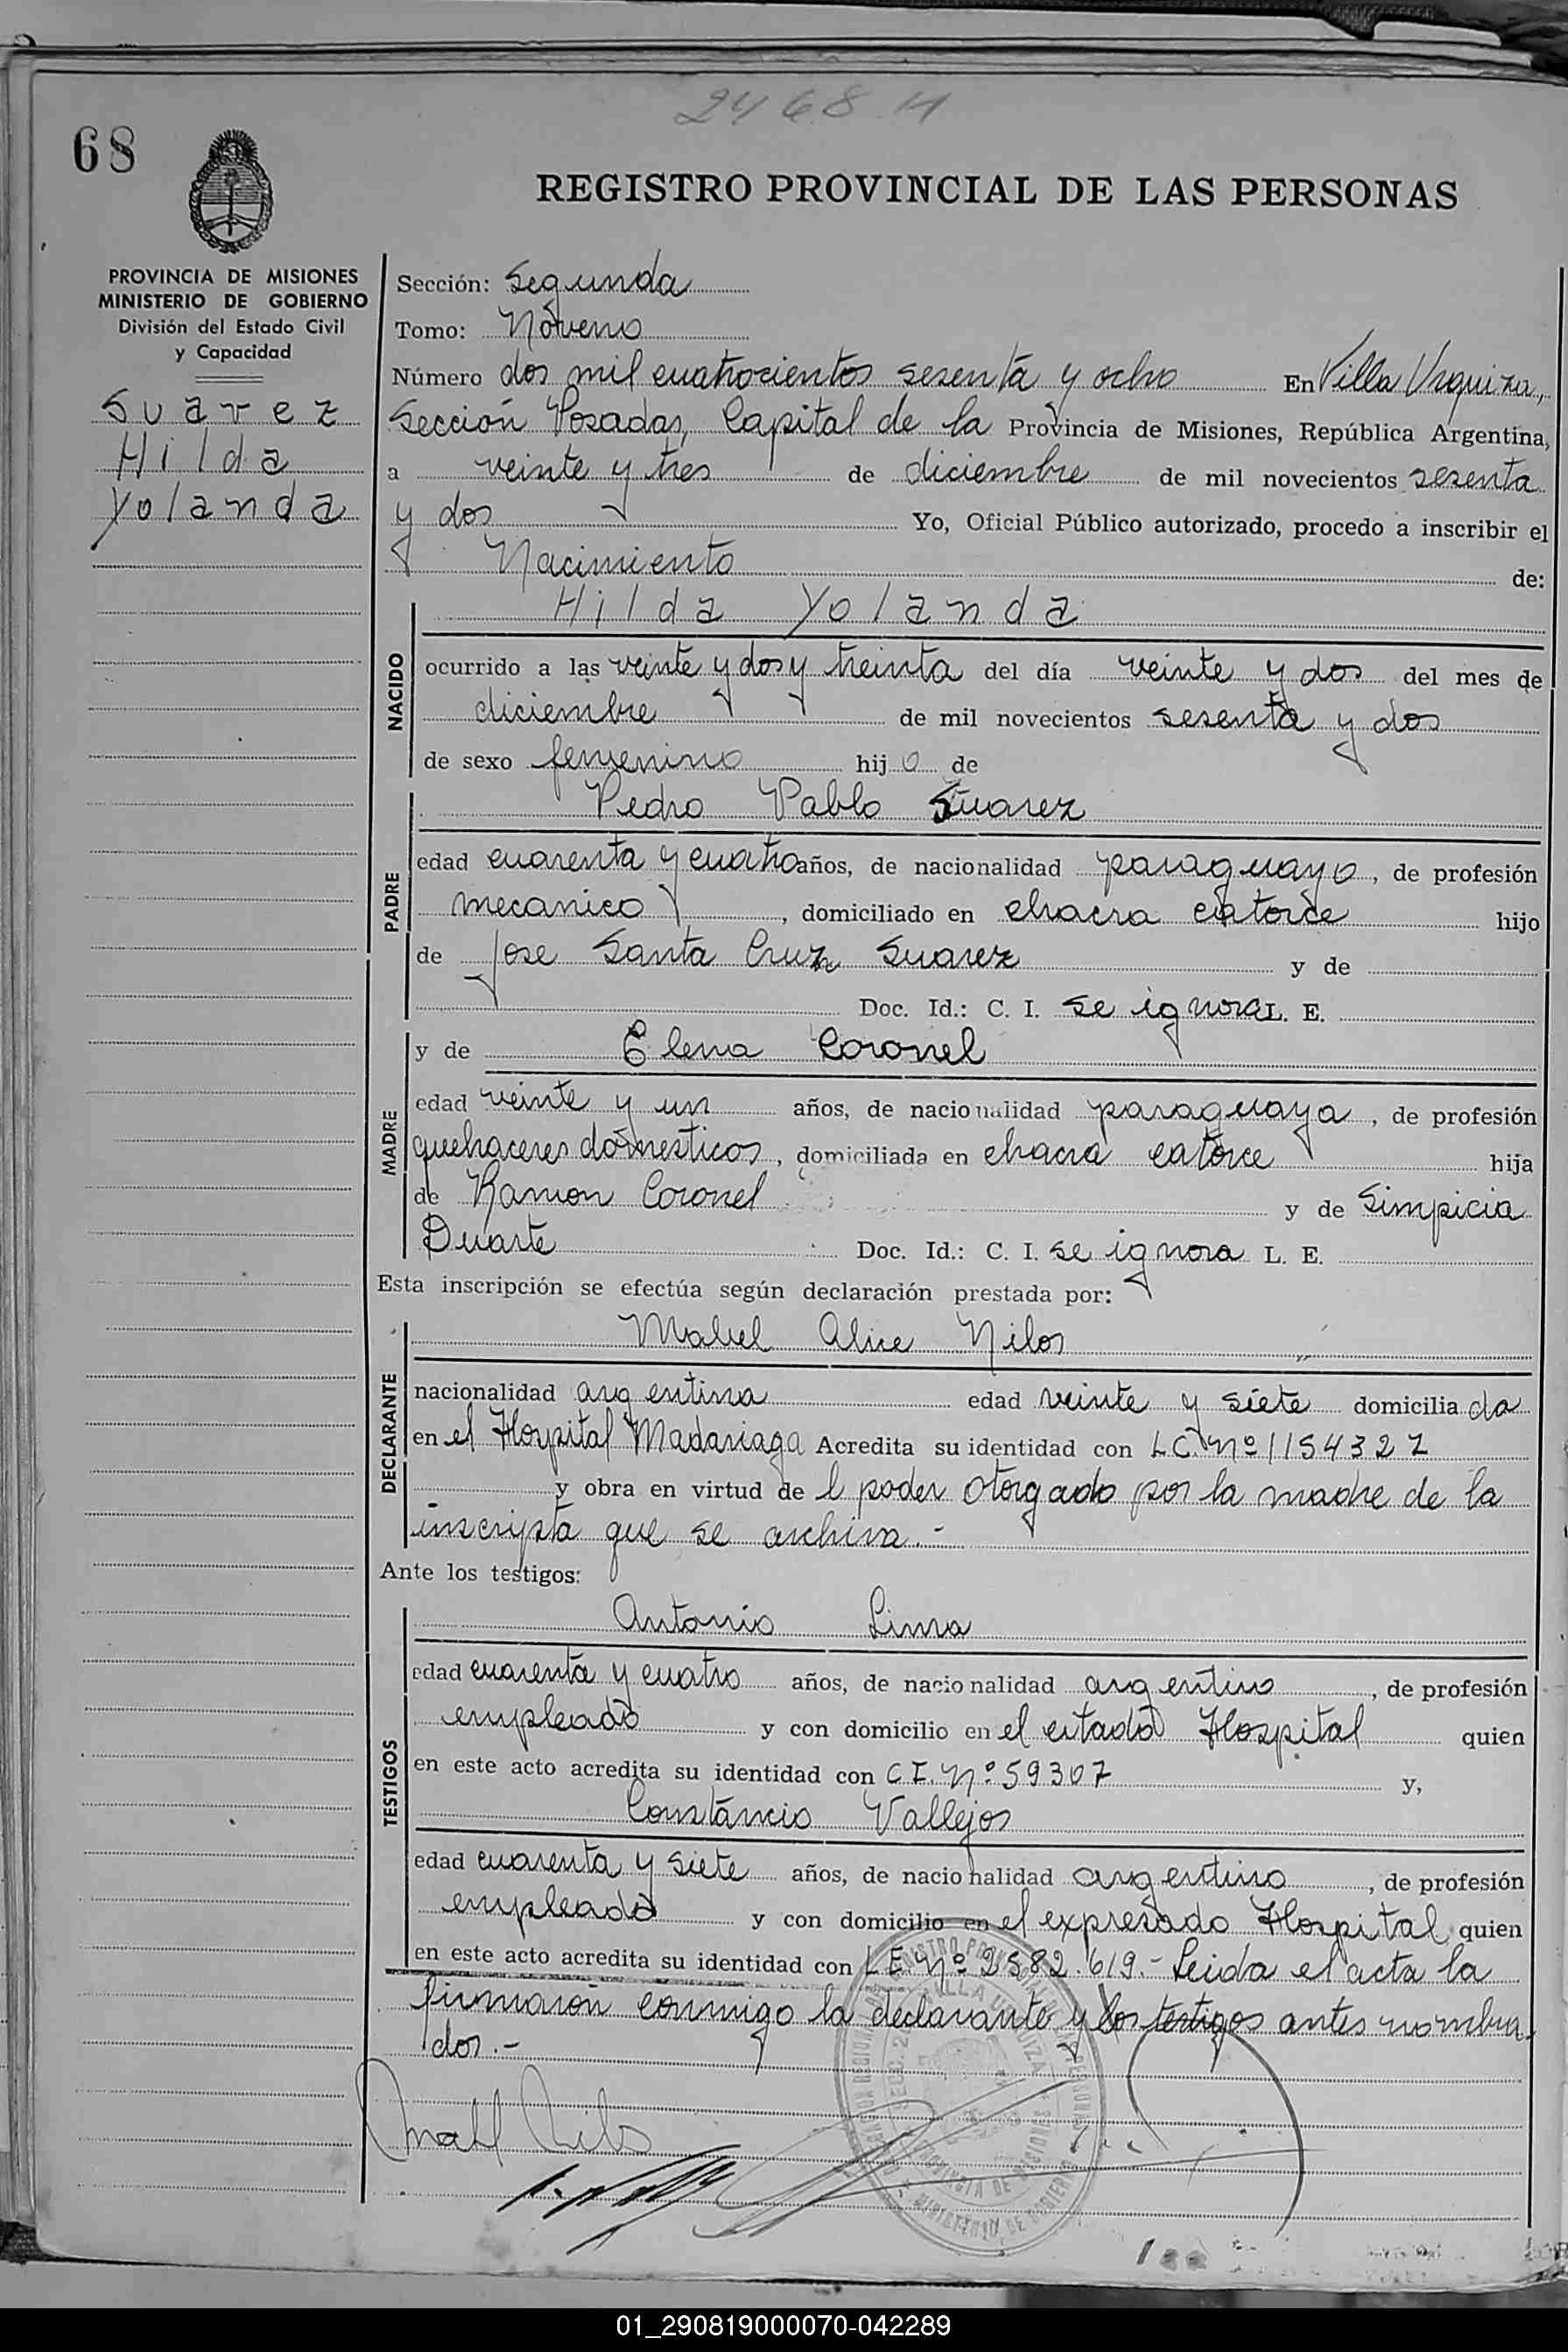 2468 H
68
REGISTRO PROVINCIAL DE LAS PERSONAS
PROVINCIA DE MISIONES
MINISTERIO DE GOBIERNO
División del Estado Civil
y Capacidad
Suarez
Hilda
Yolanda
Sección: Segunda
Tomo: Noveno
Número dos mil cuatrocientos sesenta y ocho En Villa Urquiza,
Sección Posadas, Capital de la Provincia de Misiones, República Argentina,
a veinte y tres de diciembre de mil novecientos sesenta
y dos Yo, Oficial Público autorizado, procedo a inscribir el
Nacimiento de:
Hilda Yolanda
NACIDO
ocurrido a las veinte y dos y treinta del día veinte y dos del mes de
diciembre de mil novecientos sesenta y dos
de sexo femenino hijo de
Pedro Pablo Suarez
PADRE
edad cuarenta y cuatro años, de nacionalidad paraguayo, de profesión
mecanico, domiciliado en chacra catorce hijo
de Jose Santa Cruz Suarez y de
Doc. Id.: C. I. se ignora L. E.
y de Elena Coronel
MADRE
edad veinte y un años, de nacionalidad paraguaya, de profesión
quehaceres domesticos, domiciliada en chacra catorce hija
de Ramon Coronel y de Simpicia
Duarte Doc. Id.: C. I. se ignora L. E.
Esta inscripción se efectúa según declaración prestada por:
Mabel Alice Nilos
DECLARANTE
nacionalidad argentina edad veinte y siete domiciliada
en el Hospital Madariaga Acredita su identidad con L.C. Nº 1154327
y obra en virtud del poder otorgado por la madre de la
inscripta que se archiva.-
Ante los testigos:
Antonio Lima
TESTIGOS
edad cuarenta y cuatro años, de nacionalidad argentino, de profesión
empleado y con domicilio en el citado Hospital quien
en este acto acredita su identidad con C.I. Nº 59307 y,
Constancio Vallejos
edad cuarenta y siete años, de nacionalidad argentino, de profesión
empleado y con domicilio en el expresado Hospital quien
en este acto acredita su identidad con L.E. Nº 2582.619.- Leida el acta la
firmaron conmigo la declarante y los testigos antes nombra
dos.-
01_290819000070-042289